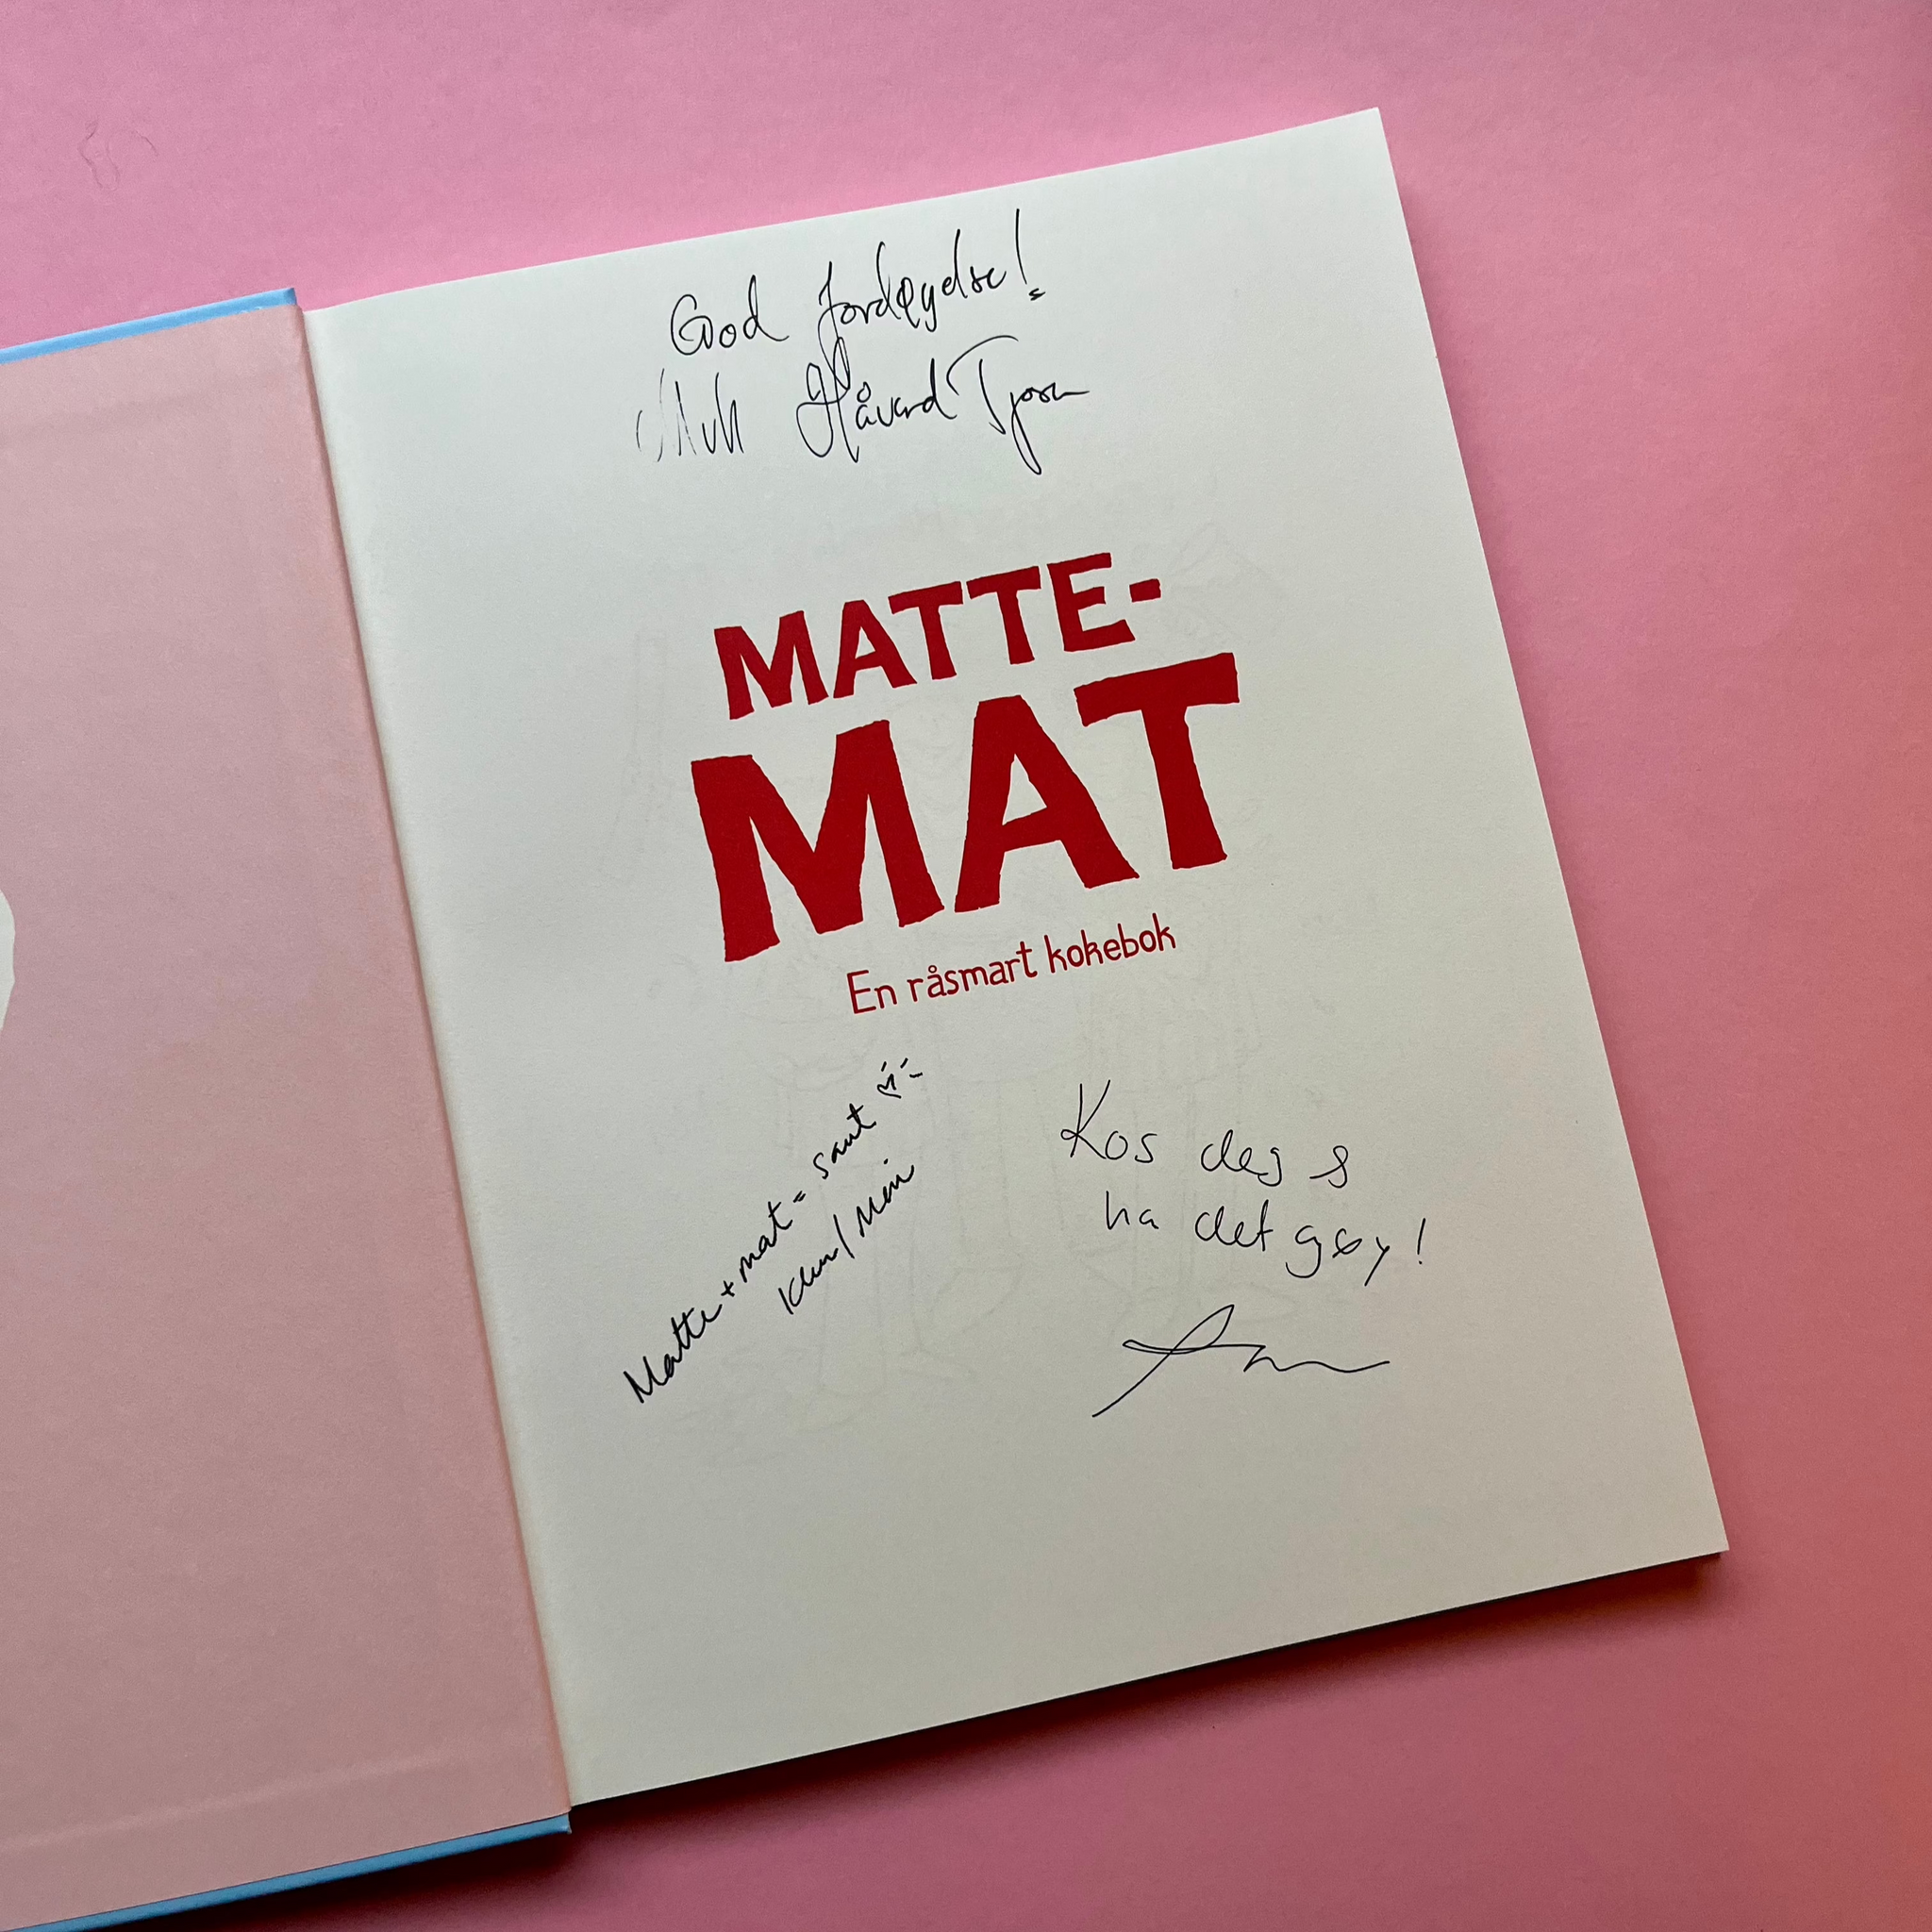 God fordøyelse!
Håvard Tjora
MATTE-
MAT
En råsmart kokebok
Matte + mat = sant
Klem/ Mari
Kos deg &
ha det gøy!